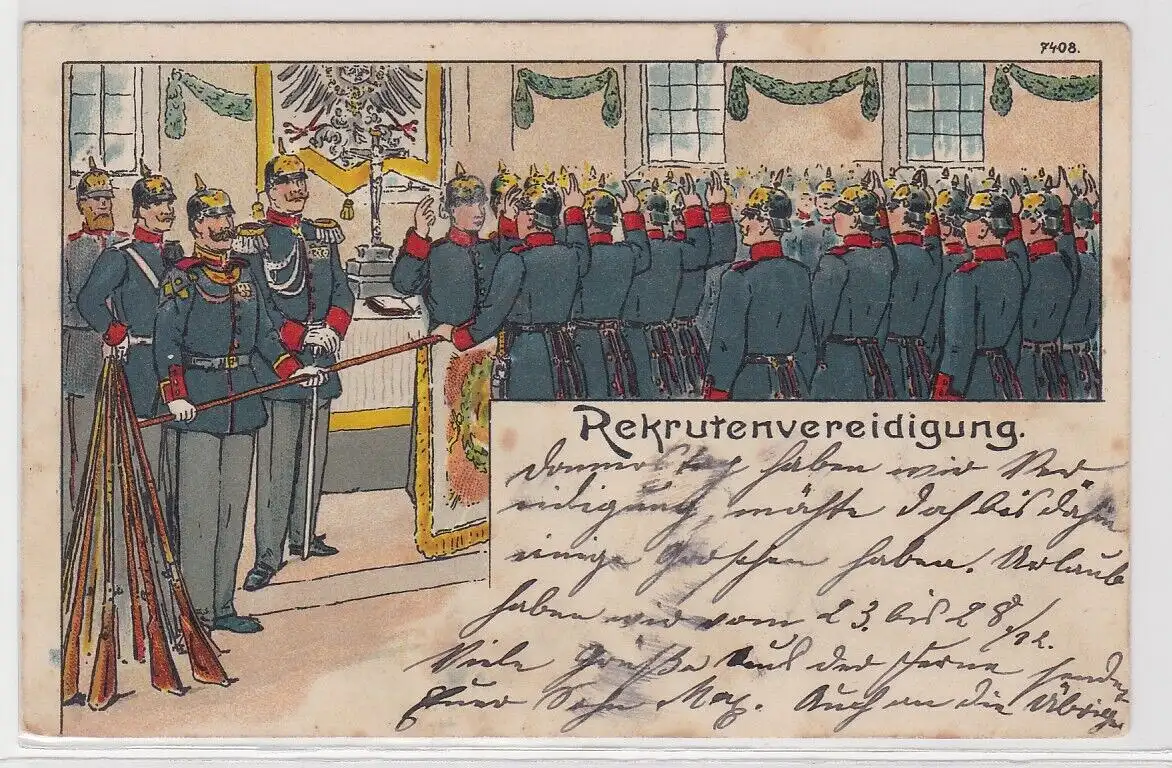 7408.
Rekrutenvereidigung.
Donnerstag haben wir Ver
eidigung, möchte doch bis dahin
einige Groschen haben. Urlaub
haben wir vom 23. bis 28./12.
Viele Grüße aus der Ferne sendet
Euer Sohn Max. Auch an die Übrigen